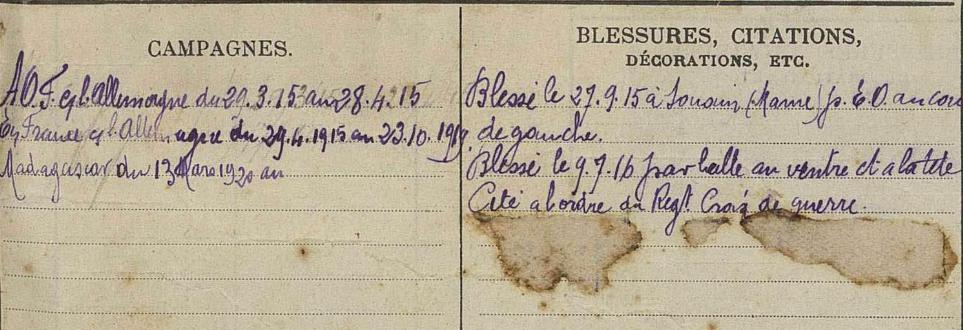 CAMPAGNES.
A.O.F. c/ l'Allemagne du 29.3.15 au 28.4.15
En France c/ l'Allemagne du 29.4.1915 au 23.10.1919
Madagascar du 13 Mars 1920 au
BLESSURES, CITATIONS,
DÉCORATIONS, ETC.
Blessé le 27.9.15 à Souain (Marne) p. E.O. au cou
de gauche.
Blessé le 9.7.16 par balle au ventre et a la tête
Cité a l'ordre du Regt Croix de guerre.